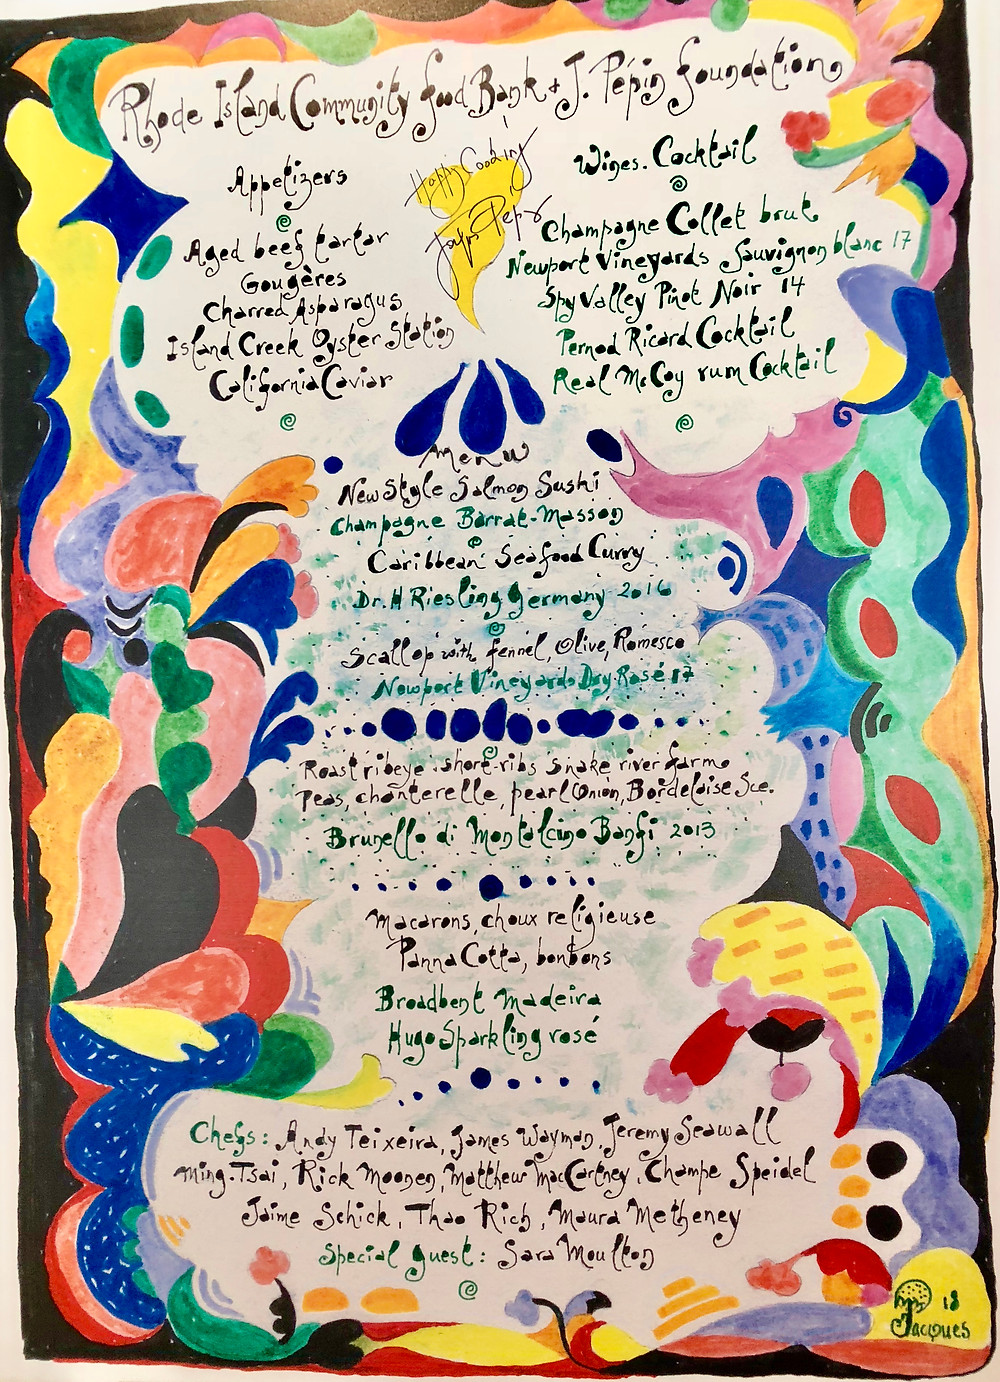 Rhode Island Community food Bank + J. Pépin foundation
Happy Cooking
Jacques Pépin
Appetizers
Aged beef tartar
Gougères
Charred Asparagus
Island Creek Oyster Station
California Caviar
Wines. Cocktail
Champagne Collet brut
Newport Vineyards Sauvignon blanc 17
Spy Valley Pinot Noir 14
Pernod Ricard Cocktail
Real McCoy rum Cocktail
Menu
New Style Salmon Sushi
Champagne Barrat-Masson
Caribbean Seafood Curry
Dr. H Riesling Germany 2016
Scallop with fennel, Olive, Romesco
Newport Vineyards Dry Rosé 17
Roast ribeye . short-ribs snake river farm
Peas, chanterelle, pearl Onion, Bordelaise Sce.
Brunello di Montalcino Banfi 2013
Macarons, choux religieuse
Panna Cotta, bonbons
Broadbent Madeira
Hugo Sparkling rosé
Chefs: Andy Teixeira, James Wayman, Jeremy Seawall
Ming.Tsai, Rick Moonen, Matthew MacCartney, Champe Speidel
Jaime Schick, Thao Rich, Maura Metheney
Special guest: Sara Moulton
18
Jacques